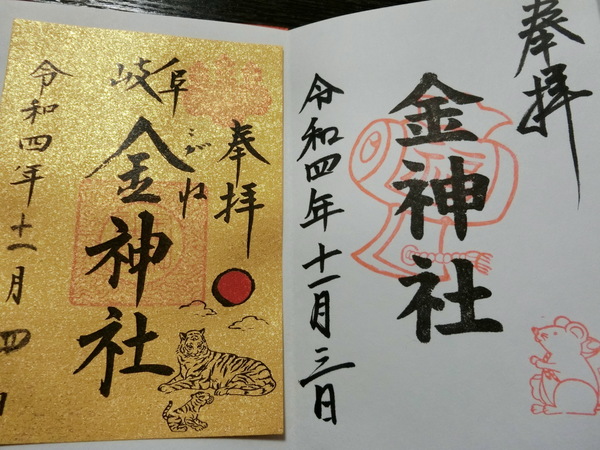 奉拝
金神社
令和四年十一月三日
奉拝
岐阜
こがね
金神社
令和四年十一月四日